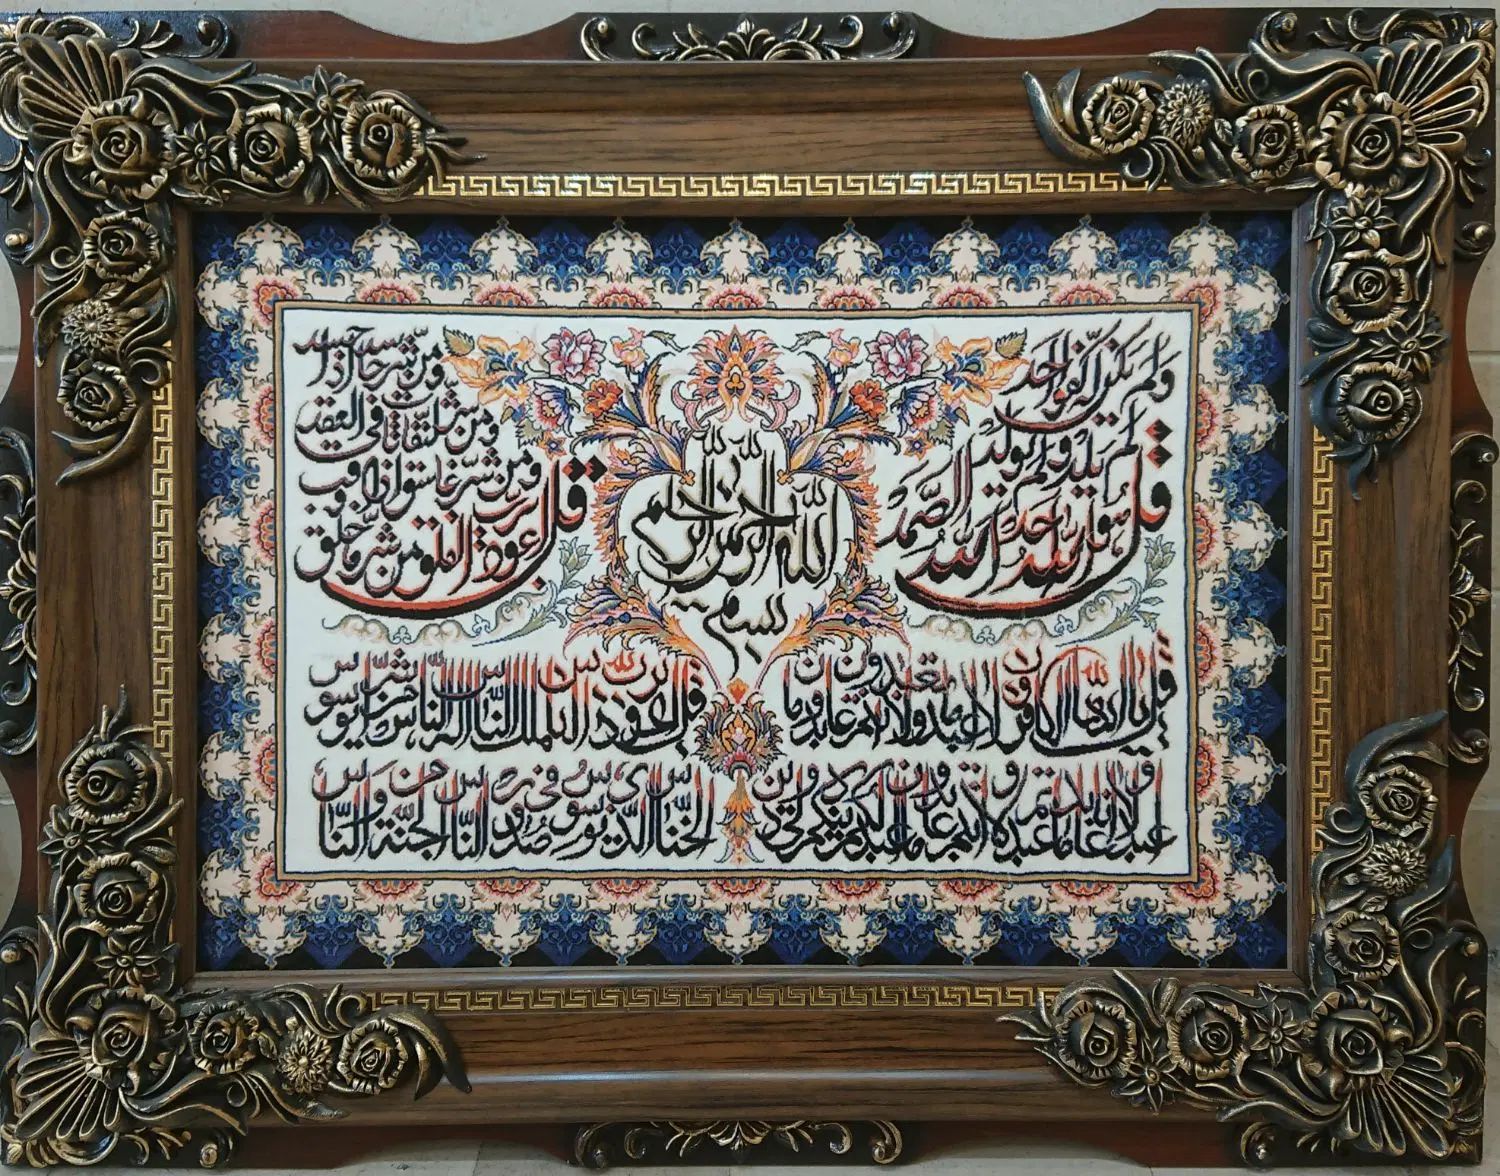 بسم
الله الرحمن الرحيم
قل هو الله احد الله الصمد
لم يلد ولم يولد
ولم يكن له كفوا احد
قل اعوذ برب الفلق من شر ما خلق
ومن شر غاسق اذا وقب
ومن شر النفاثات في العقد
ومن شر حاسد اذا حسد
قل يا ايها الكافرون لا اعبد ما تعبدون ولا انتم عابدون ما
اعبد ولا انا عابد ما عبدتم ولا انتم عابدون ما اعبد لكم دينكم ولي دين
قل اعوذ برب الناس ملك الناس اله الناس من شر الوسواس
الخناس الذي يوسوس في صدور الناس من الجنة والناس